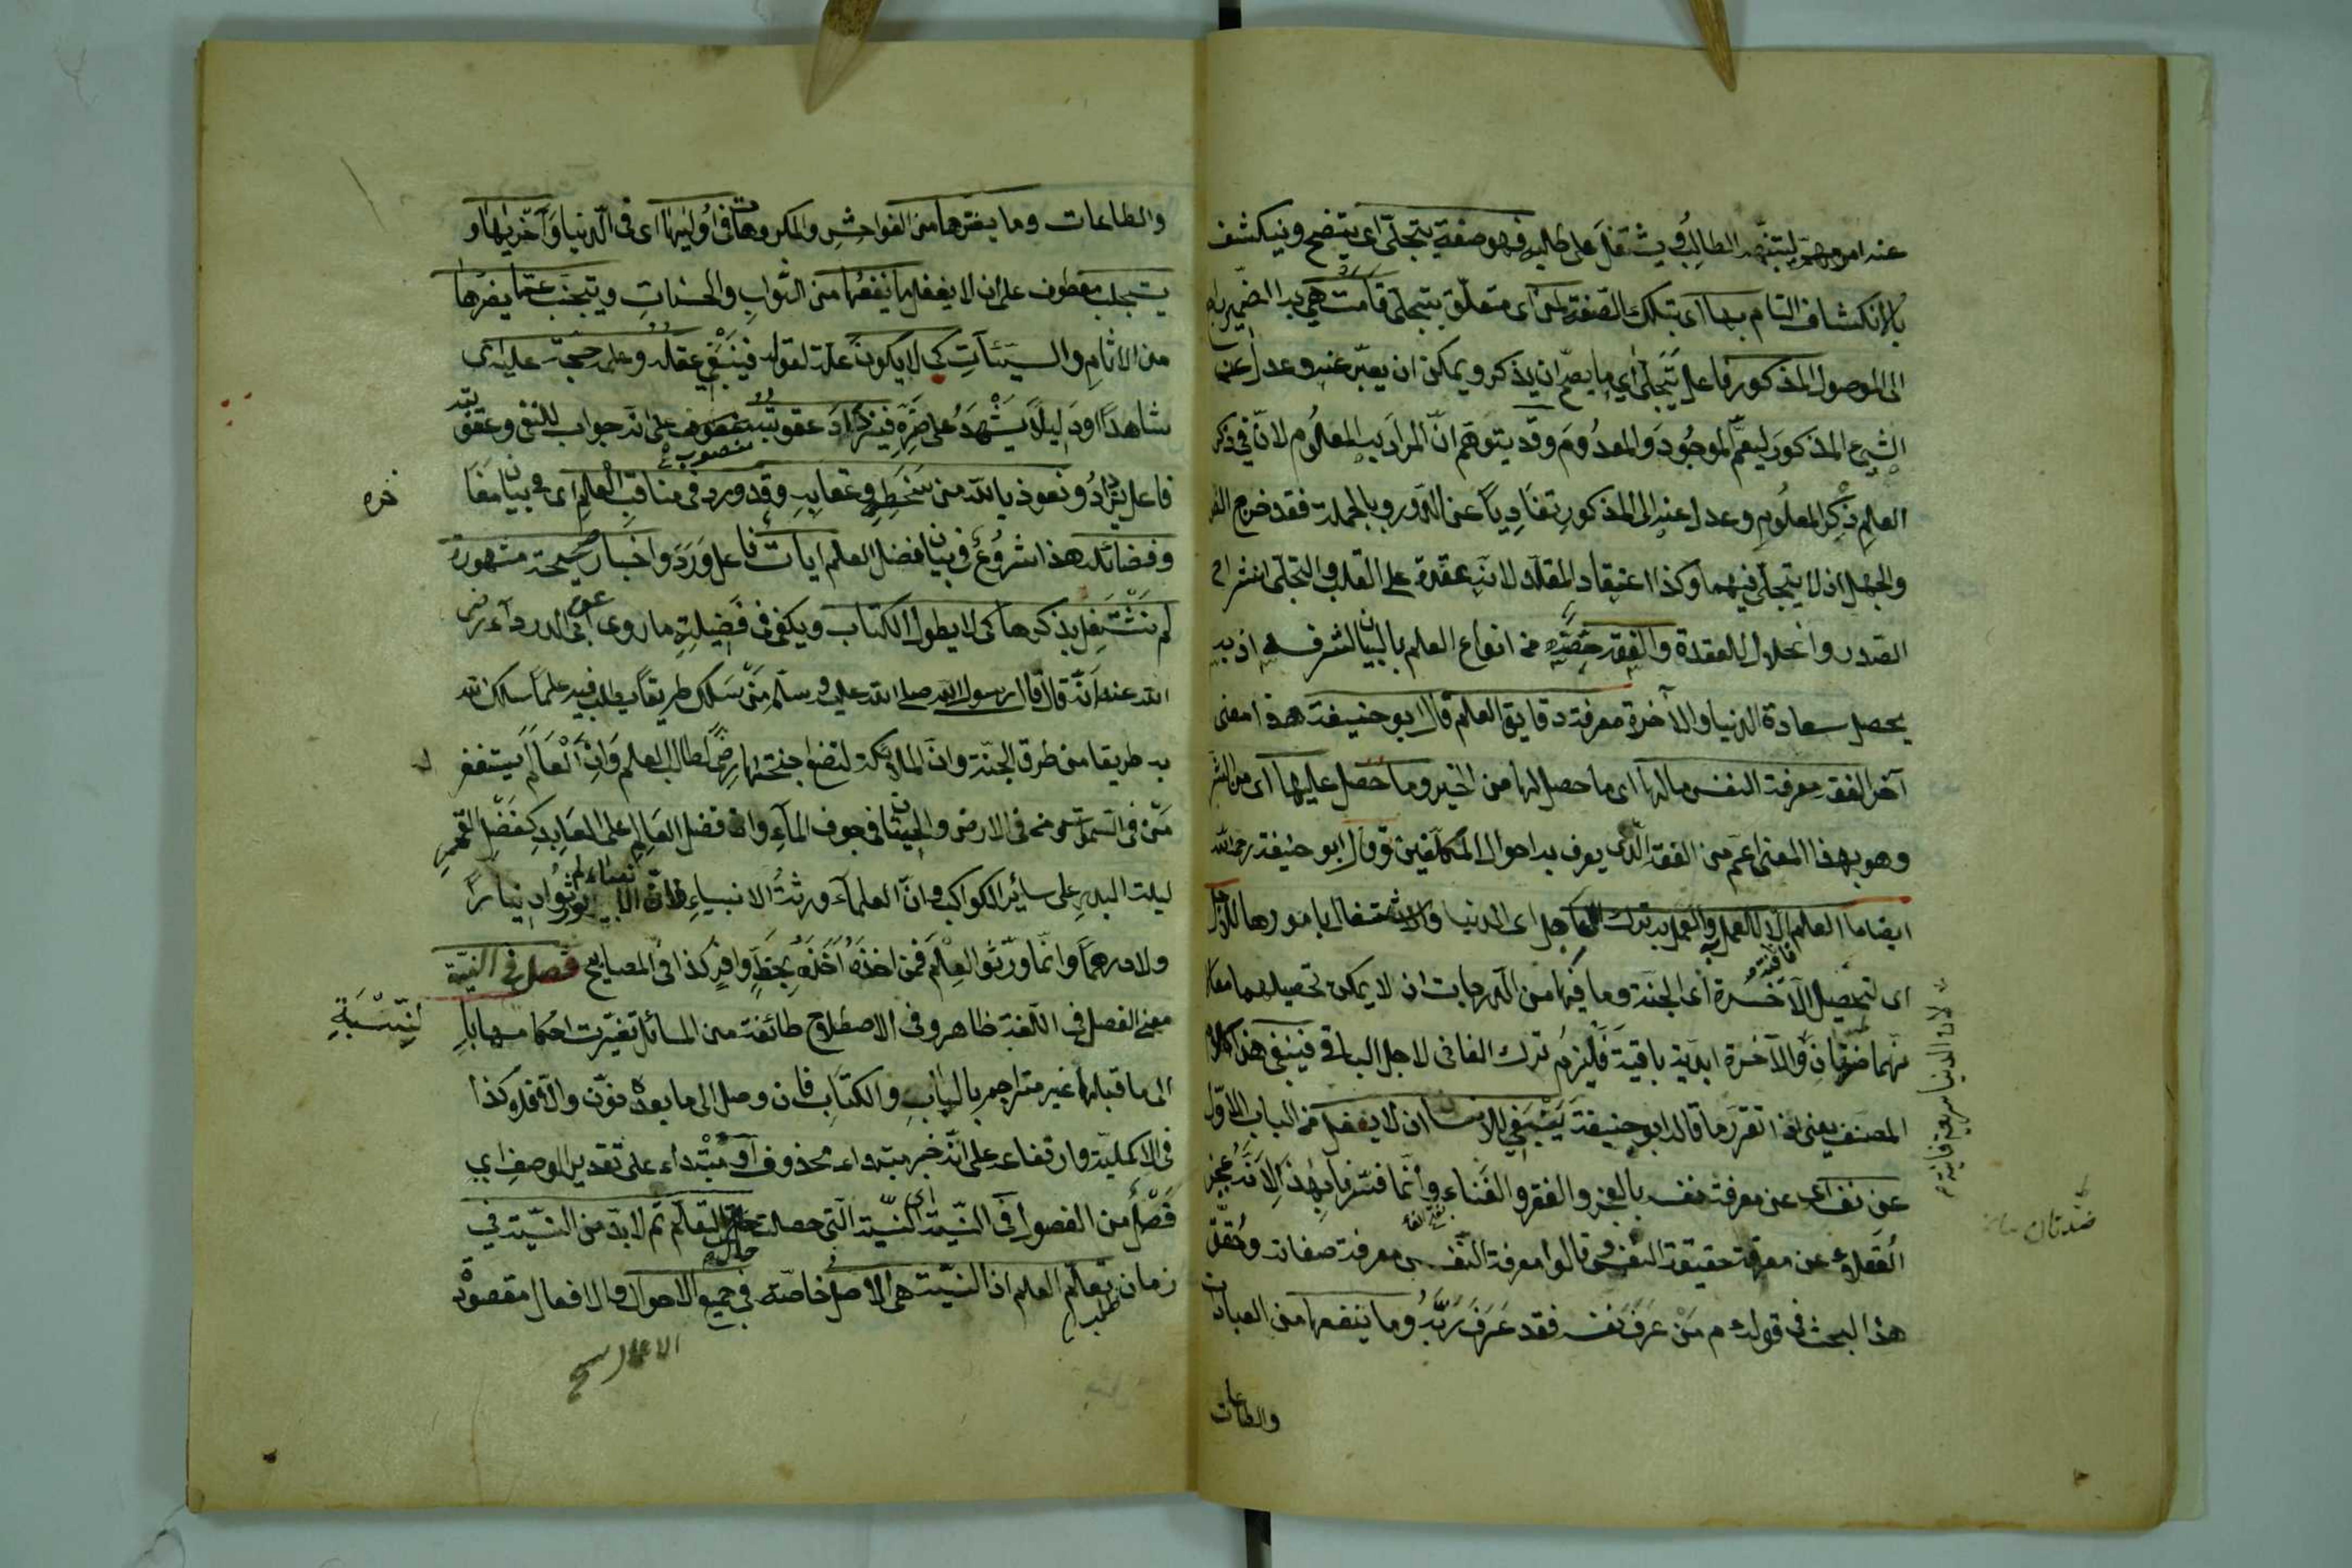 عند امر مهم ليتنبه الطالب ويشتغل على طلبه فهو صفة يتجلى اى يتضح وينكشف
بالانكشاف التام بها اى بتلك الصفة لمن اى متعلق بتجلى قامت هي بدا الضمير راجع
الى الموصول المذكور فاعل يتجلى اى ما يصح ان يذكر ويمكن ان يعبر عنه وعدل عن
الشيء المذكور ليعم الموجود والمعدوم وقد يتوهم ان المراد به المعلوم لان في ذكر
العلم ذكر المعلوم وعدل عنه الى المذكور تفاديا عن الدور وبالجملة فقد خرج الظن
والجهل اذ لا يتجلى فيهما وكذا اعتقاد المقلد لانه عقدة على القلب والتجلى انشراح
الصدر وانحلال للعقدة والفقه خصه من انواع العلم بالبيان لشرفه اذ به
يحصل سعادة الدنيا والآخرة معرفة دقايق العلم قال ابو حنيفة هذا معنى
آخر الفقه معرفة النفس مالها اى ما حصل لها من الخير وما حصل عليها اى من الشر
وهو بهذا المعنى اعم من الفقه الذى يعرف به احوال المكلفين وقال ابو حنيفة رحمه الله
ايضا ما العلم الا للعمل به والعمل به ترك العاجل اى الدنيا والاشتغال بامورها للآجل
اى لتحصيل الآخرة اى الجنة وما فيها من الدرجات اذ لا يمكن تحصيلهما معا
لانهما ضدان فانية والآخرة ابدية باقية فيلزم ترك الفانى لاجل الباقى فينبغى هذا كلام
المصنف يعنى اذا تقرر ما قاله ابو حنيفة ينبغى للانسان ان لا يغفل من الباب الاول
عن نفسه اى عن معرفة نفسه بالعجز والفقر والفناء وانما فسرنا بهذا لانه عجز
العقلاء عن معرفة حقيقة النفس وقالوا معرفة النفس معرفة صفاته وحقق
هذا البحث فى قوله عم من عرف نفسه فقد عرف ربه وما ينفعها من العبادات
والطاعات
لان الدنيا سريعة فانية
ضدتان
والطاعات وما يضرها من الفواحش والمكروهات فى اوليها اى فى الدنيا وآخريها و
يستجلب معطوف على ان لا يغفل ما ينفعها من الثواب والحسنات ويتجنب عما يضرها
من الاثام والسيئات كى لا يكون علة لقوله فينبغى عقله وعلمه حجة عليه اى
شاهدا او دليلا يشهد على ضره فيزداد عقوبته منصوب على انه جواب للنفى وعقوبته
فاعل يزداد ونعوذ بالله من سخطه وعقابه وقد ورد فى مناقب العلم اى فى بيان مفا
خره
وفضائله هذا شروع فى بيان فضل العلم ايات فاعل ورد واخبار صحيحة مشهورة
لم نشتغل بذكرها كى لا يطول الكتاب ويكفى فى فضيلته ما روى عن ابى الدرداء رضى
الله عنه انه قال قال رسول الله صلى الله عليه وسلم من سلك طريقا يطلب فيه علما سلك الله
به طريقا من طرق الجنة وان الملائكة لتضع اجنحتها رضى لطالب العلم وان العالم يستغفر له
من فى السموات ومن فى الارض والحيتان فى جوف الماء وان فضل العالم على العابد كفضل القمر
ليلة البدر على سائر الكواكب وان العلماء ورثة الانبياء وان الانبياء لم يورثوا دينارا
ولا درهما وانما ورثوا العلم فمن اخذه اخذه بحظ وافر كذا فى المصابيح فصل فى النية
معنى الفصل فى اللغة ظاهر وفى الاصطلاح طائفة من المسائل تغيرت احكامها بالنسبة
الى ما قبلها غير مترجم بالباب والكتاب فان وصل الى ما بعده فنون والا فلا كذا
فى الاكملية وارتفاعه على انه خبر مبتداء محذوف او مبتداء على تقدير الوصف اى
فصل من الفصول فى النية اى النية التى حصلت حال التعلم ثم لا بد من النية فى
زمان تعلم العلم اذ النية هى الاصل خاصة فى جميع الاحوال والافعال مقصودة
الاعمال صح